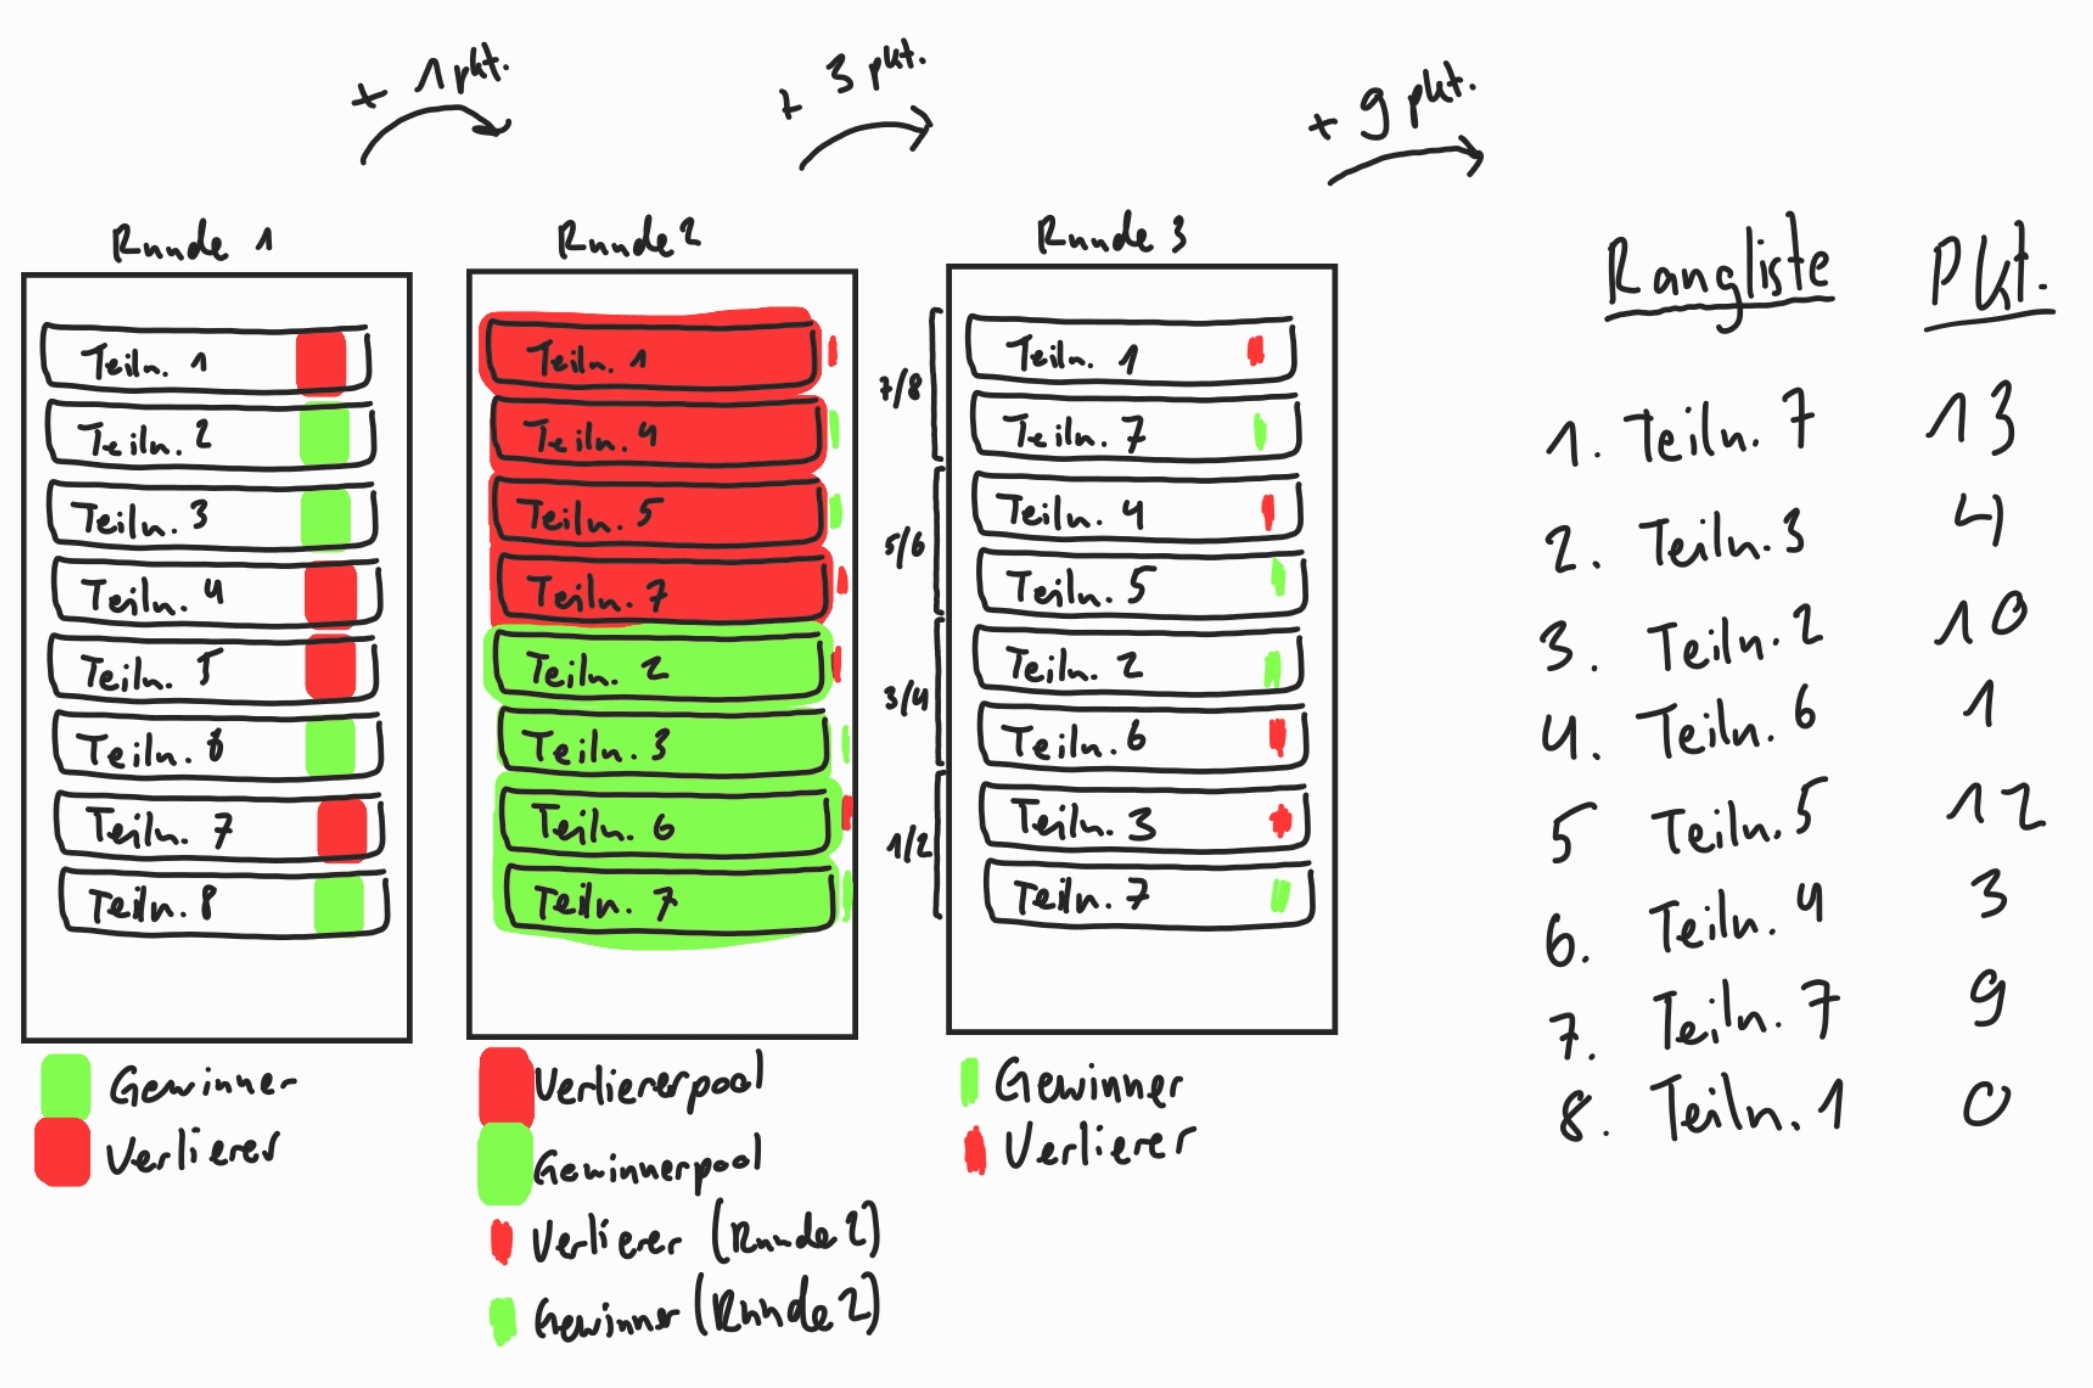 + 1 pkt.
+ 3 pkt.
+ 9 pkt.
Runde 1
Teiln. 1
Teiln. 2
Teiln. 3
Teiln. 4
Teiln. 5
Teiln. 6
Teiln. 7
Teiln. 8
Gewinner
Verlierer
Runde 2
Teiln. 1
Teiln. 4
Teiln. 5
Teiln. 7
Teiln. 2
Teiln. 3
Teiln. 6
Teiln. 7
Verliererpool
Gewinnerpool
Verlierer (Runde 2)
Gewinner (Runde 2)
Runde 3
7/8
Teiln. 1
Teiln. 7
5/6
Teiln. 4
Teiln. 5
3/4
Teiln. 2
Teiln. 6
1/2
Teiln. 3
Teiln. 7
Gewinner
Verlierer
Rangliste Pkt.
1. Teiln. 7 13
2. Teiln. 3 4
3. Teiln. 2 10
4. Teiln. 6 1
5 Teiln. 5 12
6. Teiln. 4 3
7. Teiln. 7 9
8. Teiln. 1 0